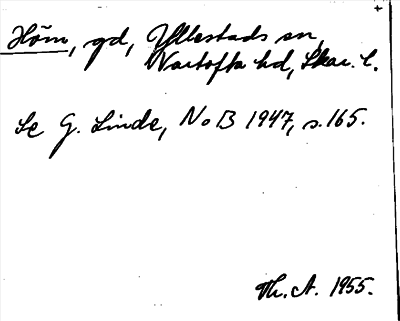 Höm, gd, Yllestads sn,
Vartofta hd, Skar. l.
Se G. Linde, NoB 1947, s. 165.
Th. A. 1955.